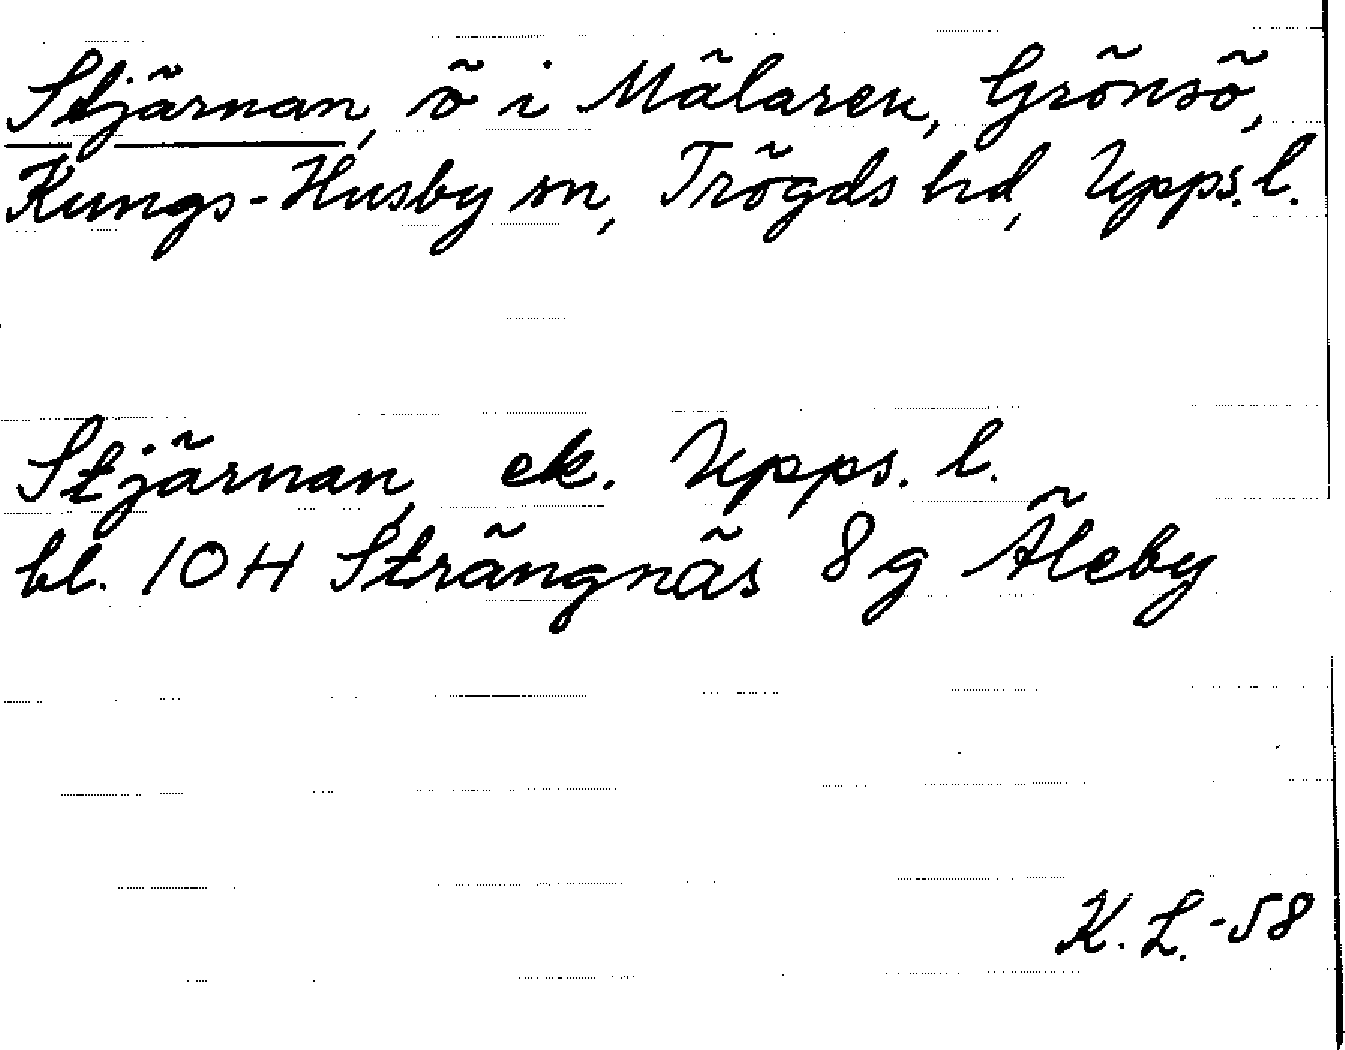 Stjärnan, ö i Mälaren, Grönsö,
Kungs-Husby sn, Trögds hd, Upps.l.
Stjärnan, ek. Upps. l.
bl. 10 H Strängnäs 8 g Äleby
K. L. -58